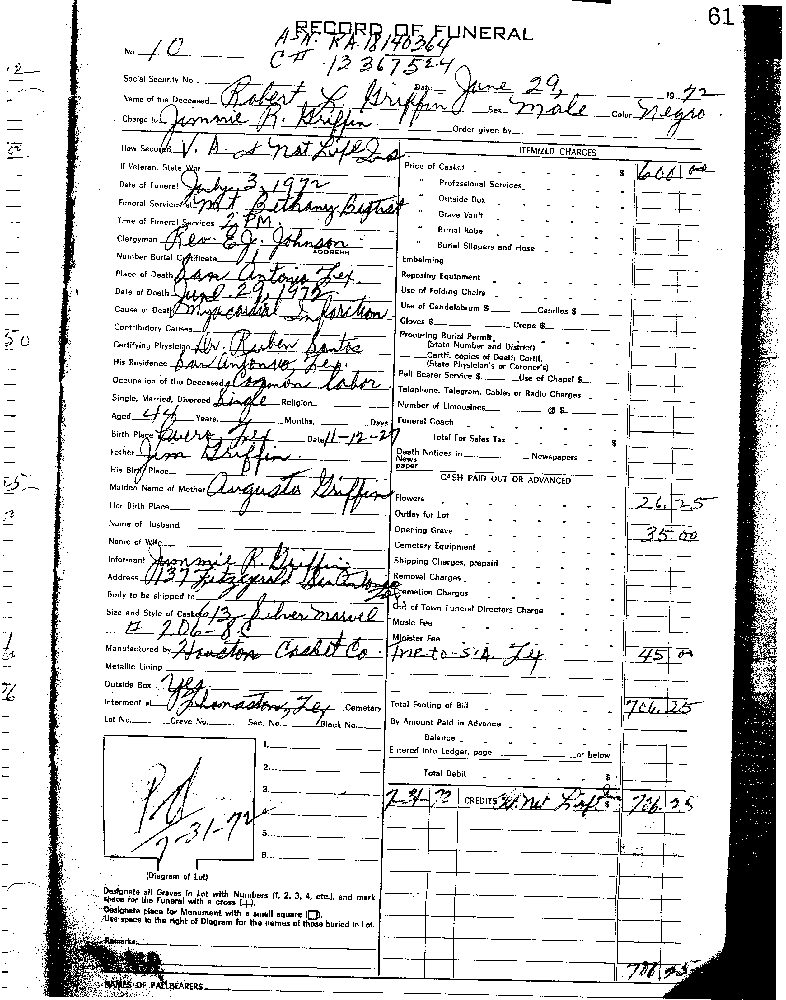 61
RECORD OF FUNERAL
A.S.N. RA 18140364
No. 10 C# 13367524
Social Security No. Date June 29, 1972
Name of the Deceased Robert L. Griffin Sex male Color Negro
Charge to Jimmie R. Griffin Order given by
How Secured V. A. & Nat Life Ins
If Veteran, State War
Date of Funeral July 3, 1972
Funeral Services at Mt Bethany Baptist
Time of Funeral Services 2 PM
Clergyman Rev. E.J. Johnson
ADDRESS
Number Burial Certificate
Place of Death San Antonio Tex.
Date of Death June 29, 1972
Cause of Death Myocardial Infarction
Contributory Causes
Certifying Physician Dr. Ruben Santos
His Residence San Antonio, Tex.
Occupation of the Deceased Common labor
Single, Married, Divorced Single Religion
Aged 44 Years Months, Days
Birth Place Cuero, Tex Date 11-12-27
Father Jim Griffin
His Birth Place
Maiden Name of Mother Augusta Griffin
Her Birth Place
Name of Husband
Name of Wife
Informant Jimmie R. Griffin
Address 1137 Fitzgerald San Antonio Tex
Body to be shipped to
Size and Style of Casket 6/3 Silver marvel
# 206-8C
Manufactured by Houston Casket Co.
Metallic Lining
Outside Box Yes
Interment at Thomaston, Tex Cemetery
Lot No. Grave No. Sec. No. Block No.
1.
2.
3.
5.
6.
Pd
7-31-72
(Diagram of Lot)
Designate all Graves in Lot with Numbers (1, 2, 3, 4, etc.), and mark
space for the Funeral with a cross (+).
Designate place for Monument with a small square (□).
Use space to the right of Diagram for the names of those buried in Lot.
Remarks
NAMES OF PALLBEARERS
ITEMIZED CHARGES
Price of Casket $ 600 00
" Professional Services
" Outside Box
" Grave Vault
" Burial Robe
" Burial Slippers and Hose
Embalming
Reposing Equipment
Use of Folding Chairs
Use of Candelabrum $ Candles $
Gloves $ Crepe $
Procuring Burial Permit,
(State Number and District)
Certif. copies of Death Certif.
(State Physician's or Coroner's)
Pall Bearer Service $ Use of Chapel $
Telephone, Telegram, Cables or Radio Charges
Number of Limousines @ $
Funeral Coach
Total For Sales Tax $
Death Notices in Newspapers
News
paper
CASH PAID OUT OR ADVANCED
Flowers 26.25
Outlay for Lot
Opening Grave 35 00
Cemetery Equipment
Shipping Charges, prepaid
Removal Charges
Cremation Charges
Out of Town Funeral Directors Charge
Music Fee
Minister Fee
Tme-to-S.A. Tex 45 00
Total Footing of Bill 706.25
By Amount Paid in Advance
Balance
Entered into Ledger, page or below
Total Debit $
CREDITS Nat Life $ 706.25
706.25